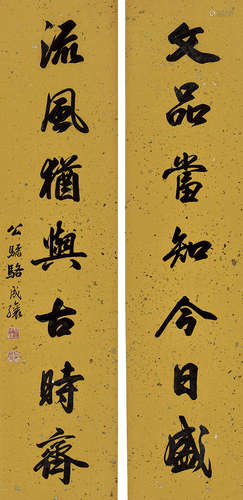 文品當知今日盛
流風猶與古時齊
公驌駱成驤